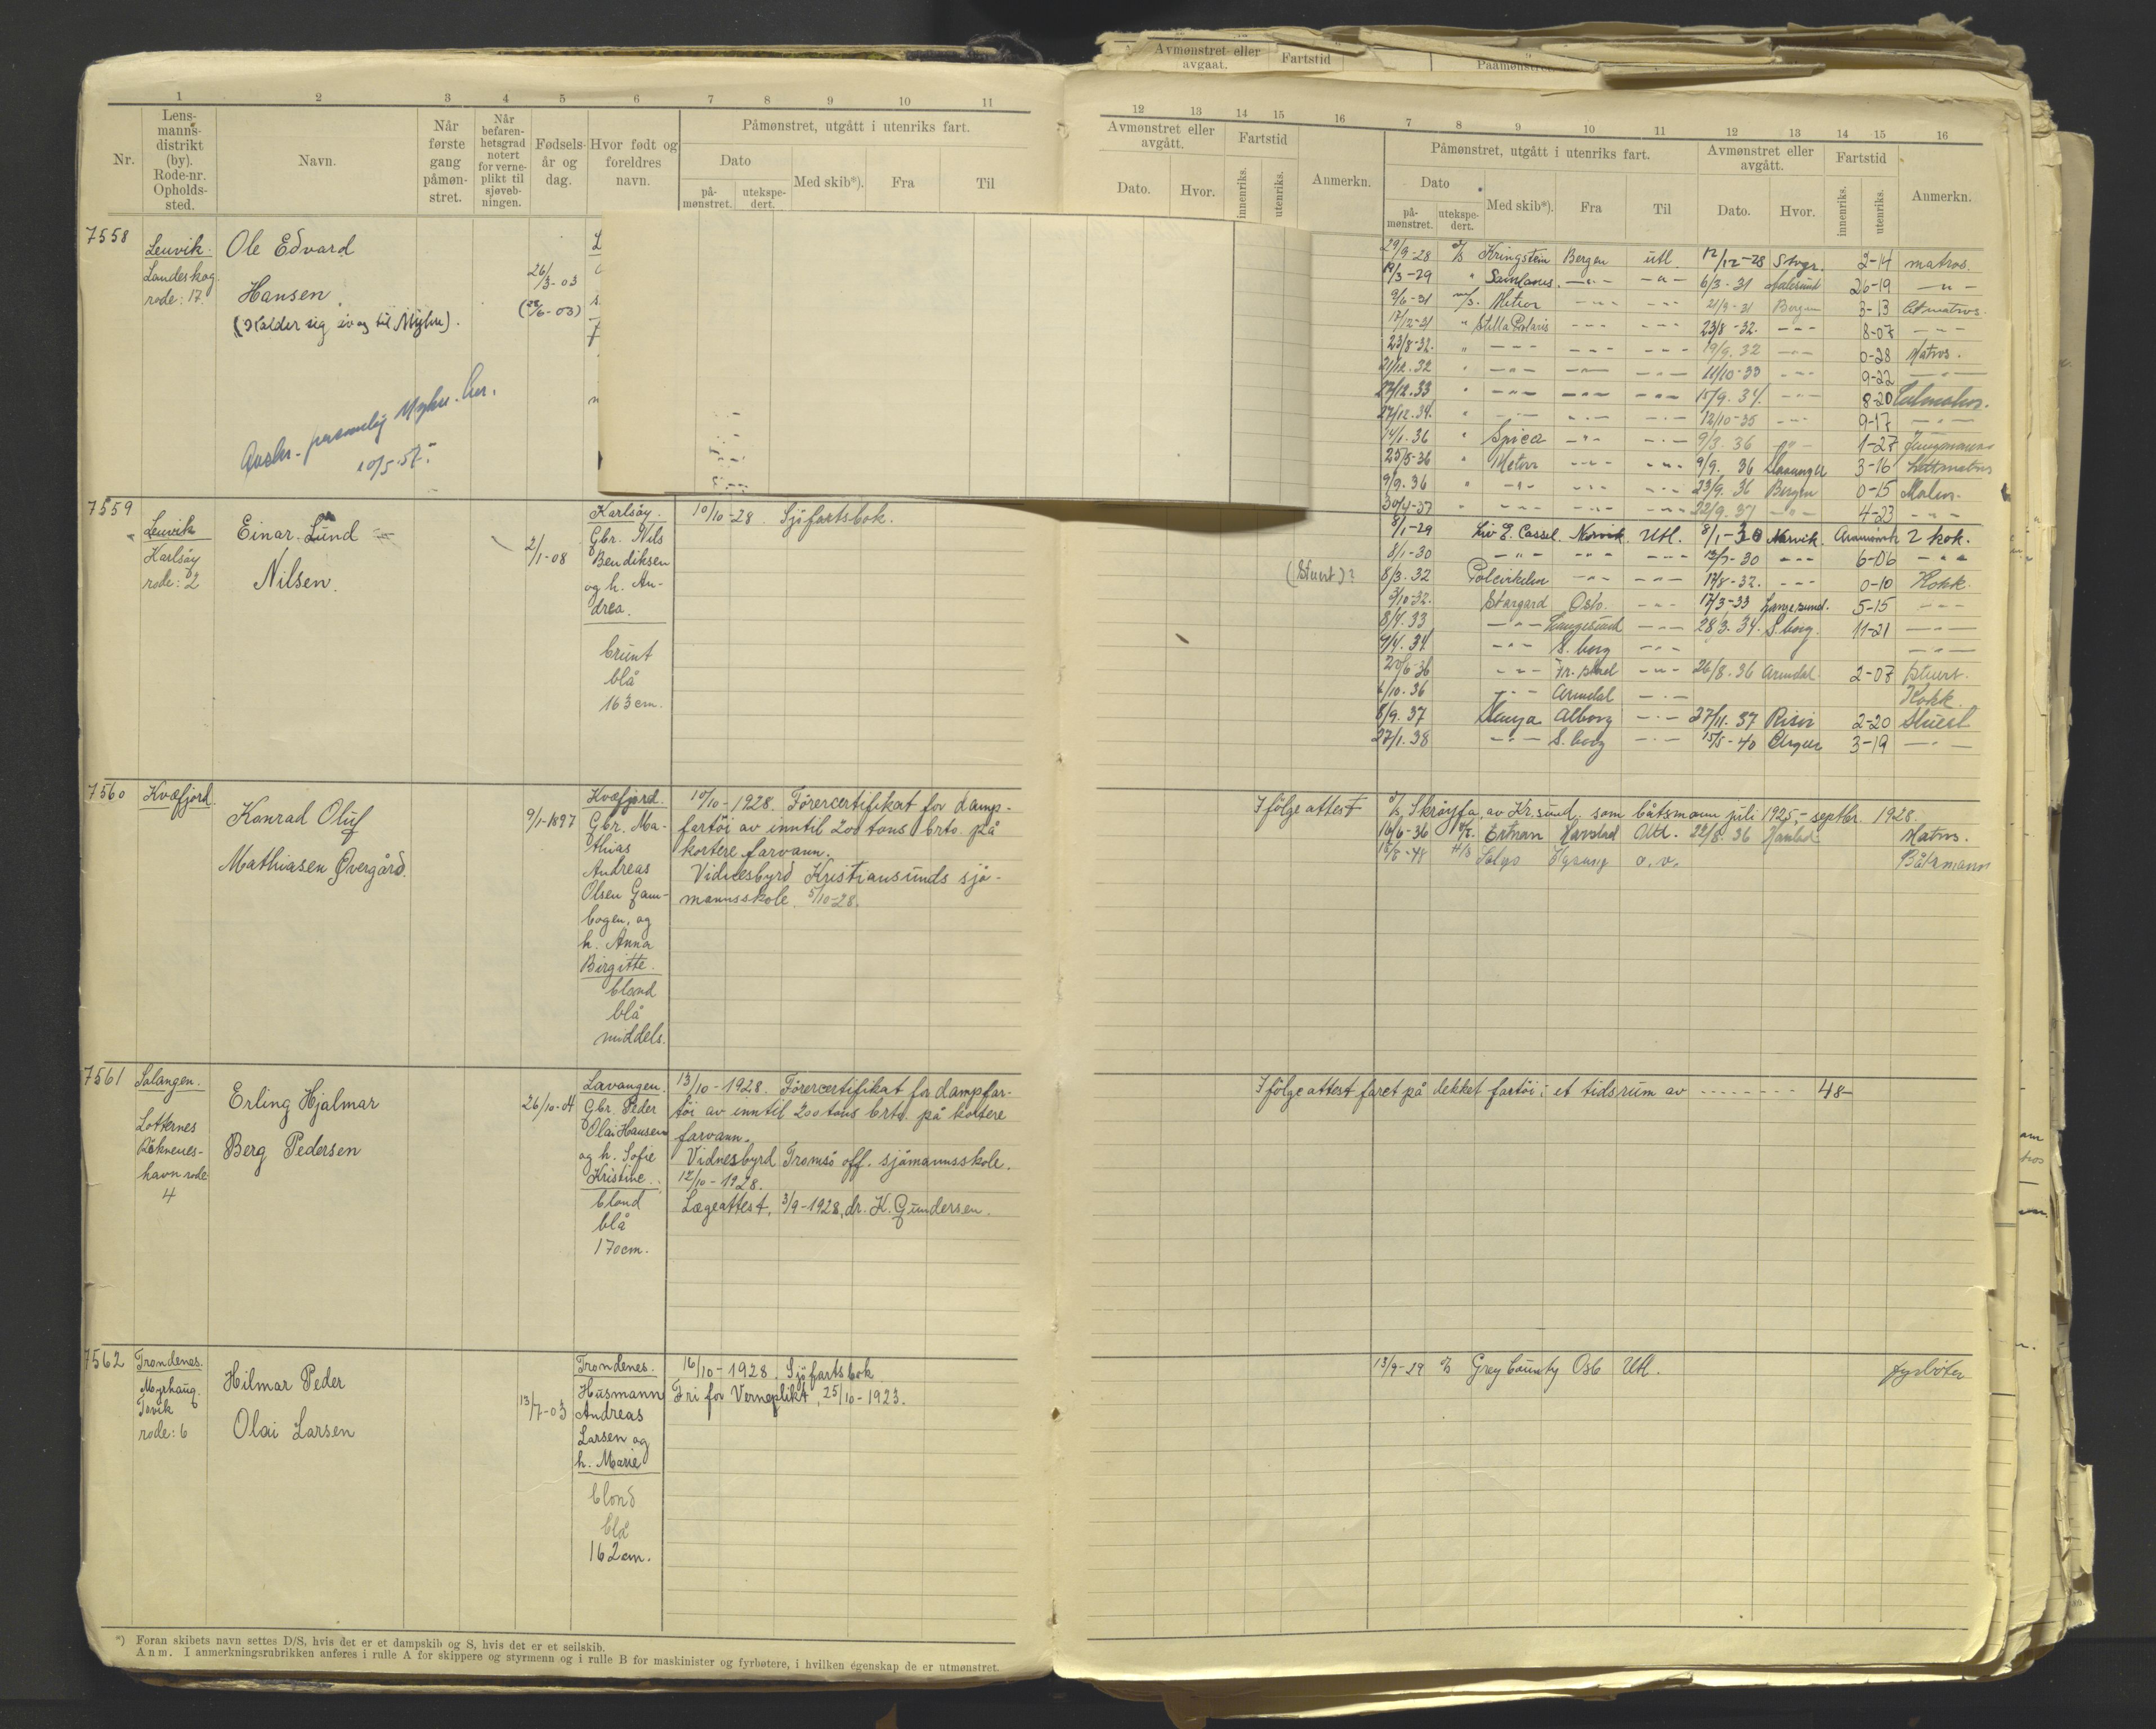 Avmønstret eller
avgaat.
Fartstid
1 2 3 4 5 6 7 8 9 10 11
Nr.
Lens-
manns-
distrikt
(by).
Rode-nr.
Opholds-
sted.
Navn.
Når
første
gang
påmøn-
stret.
Når
befaren-
hetsgrad
notert
for verne-
plikt til
sjøveb-
ningen.
Fødsels-
år og
dag.
Hvor født og
foreldres
navn.
Påmønstret, utgått i utenriks fart.
Dato
på-
mønstret.
utekspe-
dert.
Med skib*).
Fra
Til
12 13 14 15 16
Avmønstret eller
avgått.
Dato.
Hvor.
Fartstid
innenriks.
utenriks.
Anmerkn.
7 8 9 10 11 12 13 14 15 16
Påmønstret, utgått i utenriks fart.
Dato
på-
mønstret.
utekspe-
dert.
Med skib*).
Fra
Til
Avmønstret eller
avgått.
Dato.
Hvor.
Fartstid
innenriks.
utenriks.
Anmerkn.
7558
Lenvik.
Landeskog
rode: 17.
Ole Edvard
Hansen
(Kalder sig også til Myhre).
26/3-03
10/5-57.
29/9-28 Kringstein Bergen utl. 12/12-28 Stvgr. 2-14 matros.
6/3-31 Aalesund 26-19 -"-
9/6-31 m/s. Meteor -"- -"- 21/9-31 Bergen 3-13
17/12-31 " Stella Polaris -"- -"- 23/8-32. -"- 8-07 -"-
23/8-32. " -"- -"- -"- 19/9.32 -"- 0-28 Matros.
21/12.32 " -"- -"- -"- 11/10-33 -"- 9-22 -"-
27/12.33 " -"- -"- -"- 15/9.34. -"- 8-20
27/12.34. " -"- -"- -"- 12/10-35 -"- 9-17 -"-
14/1.36 " Spica -"- -"- 9/3.36 -"- 1-27 Jungmann
25/5-36 " Meteor -"- -"- 9/9.36 Stavanger 3-16 Lettmatros
9/9.36 " -"- -"- -"- 23/9.36 Bergen 0-15
30/4-37 " -"- -"- -"- 22/9.37 -"- 4-23 -"-
7559
Lenvik
Karlsøy
rode: 2
Einar Lund
Nilsen.
2/1-08
Karlsøy.
Gbr. Nils
Bendiksen
og h. An-
drea.
brunt
blå
163 cm.
10/10-28. Sjøfartsbok.
8/1-29 Liv E. Cassel Narvik. Utl. 8/1-30 Narvik. 2 kok.
8/1-30 -"- -"- -"- 13/7-30 -"- 6-06 -"-
(Stuert)? 8/3.32 Polcirkelen -"- -"- 17/8-32. -"- 0-10 Kokk.
2/10-32. Stargard Oslo. -"- 17/3-33 Langesund. 5-15 -"-
8/4.33 -"- Langesund -"- 28/3.34. S.borg. 11-21 -"-
9/4.34 -"- S. borg -"- -"-
20/6-36 -"- Fr. stad -"- 26/8.36 Arendal. 2-07 Stuert.
6/10.36 -"- Arendal -"- Kokk.
8/9.37 Ålborg -"- 27/11.37 Risør 2-20 Stuert
27/1.38 -"- S. borg -"- 15/5-40 Bergen 3-19 -"-
7560
Kvæfjord.
Konrad Oluf
Mathiasen Øvergård.
9/1-1897
Kvæfjord.
Gbr. Ma-
thias
Andreas
Olsen Gam-
bogen, og
h. Anna
Birgitte.
blond
blå
middels.
10/10-1928. Førercertifikat for damp-
fartøi av inntil 200 tons brto. på
kortere farvann.
Vidnesbyrd Kristiansunds sjø-
mannsskole. 5/10-28.
Ifølge attest D/S Skrøyfa, av Kr.sund, som båtsmann juli 1925,- septbr. 1928.
16/6-36 Harstad Utl. 22/8.36 Harstad Matros.
12/8-48 H/S a.v. Båtsmann
7561
Salangen.
Lotternes
Røkneses-
havn rode
4
Erling Hjalmar
Berg Pedersen
26/10-04
Lavangen.
Gbr. Peder
Olai Hansen
og h. Sofie
Kristine.
blond
blå
170 cm.
13/10-1928. Førercertifikat for dampfar-
tøi av inntil 200 tons brto. på kortere
farvann.
Vidnesbyrd Tromsø off. sjømannsskole.
12/10-1928.
Lægeattest, 3/9-1928, dr. K. Gundersen.
Ifølge attest faret på dekket fartøi i et tidsrum av ------- 48-
7562
Trondenes.
Myrhaug.
Tovik
rode: 6
Hilmar Peder
Olai Larsen
13/7-03
Trondenes.
Husmann
Andreas
Larsen og
h. Marie
blond
blå
162 cm.
16/10-1928. Sjøfartsbok
Fri for Verneplikt, 25/10-1923.
13/9-29 D/S Grey County Oslo Utl. fyrbøter
*) Foran skibets navn settes D/S, hvis det er et dampskib og S, hvis det er et seilskib.
Anm. I anmerkningsrubrikken anføres i rulle A for skippere og styrmenn og i rulle B for maskinister og fyrbøtere, i hvilken egenskap de er utmønstret.